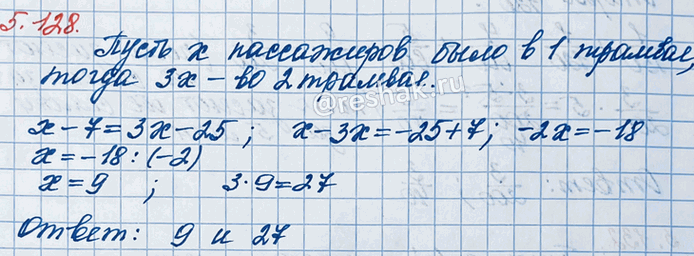 5.128.
Пусть x пассажиров было в 1 трамвае,
тогда 3x – во 2 трамвае.
@reshak.ru
x - 7 = 3x - 25 ; x - 3x = -25 + 7 ; -2x = -18
x = -18 : (-2)
x = 9 ; 3·9 = 27
Ответ: 9 и 27